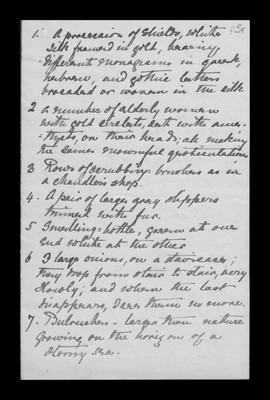 1. A procession of shields, white
silk framed in gold, bearing
different monograms in greek,
hebrew, and gothic letters
brocaded or woven in the silk
2 a number of elderly women
with gold circlets, set with ame-
thysts, on their heads; all making
the same mournful gesticulations
3 Rows of scrubbing brushes as in
a chandler's shop.
4. A pair of large gray slippers
trimmed with fur.
5 Smelling-bottle, green at one
end white at the other
6 3 large onions, on a staircase;
They hop from stair to stair, very
slowly; and when the last
disappears, I see them no more.
7. Bulrushes - larger than nature
growing on the horizon of a
stormy sea.